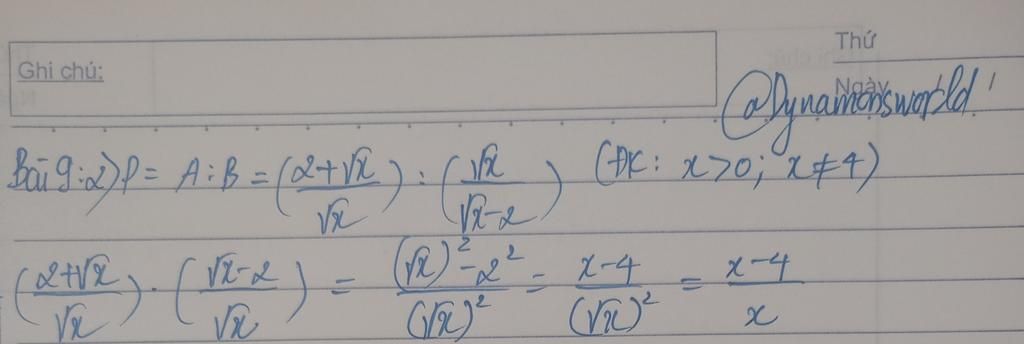 Thứ
Ghi chú:
Ngày
@Dynamonsworld
Bài 9:2) P = A : B = ((2+√x)/√x) : (√x/(√x-2)) (ĐK: x>0; x≠4)
((2+√x)/√x) . ((√x-2)/√x) = ((√x)²-2²)/(√x)² = (x-4)/(√x)² = (x-4)/x